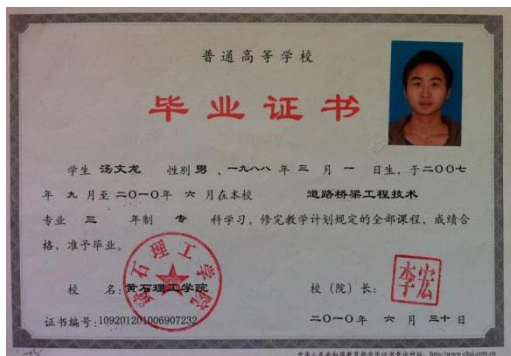 普通高等学校
毕业证书
学生 汤文龙 性别 男 ，一九八八 年 三 月 一 日生，于二〇〇七
年 九 月至 二〇一〇年 六 月在本校 道路桥梁工程技术
专业 三 年制 专 科学习，修完教学计划规定的全部课程，成绩合
格，准予毕业。
校 名：黄石理工学院 校（院）长： 李宏
黄石理工学院
证书编号：109201201006907232 二〇一〇年 六 月 三十 日
中华人民共和国教育部学历证书查询网址：http://www.chsi.com.cn